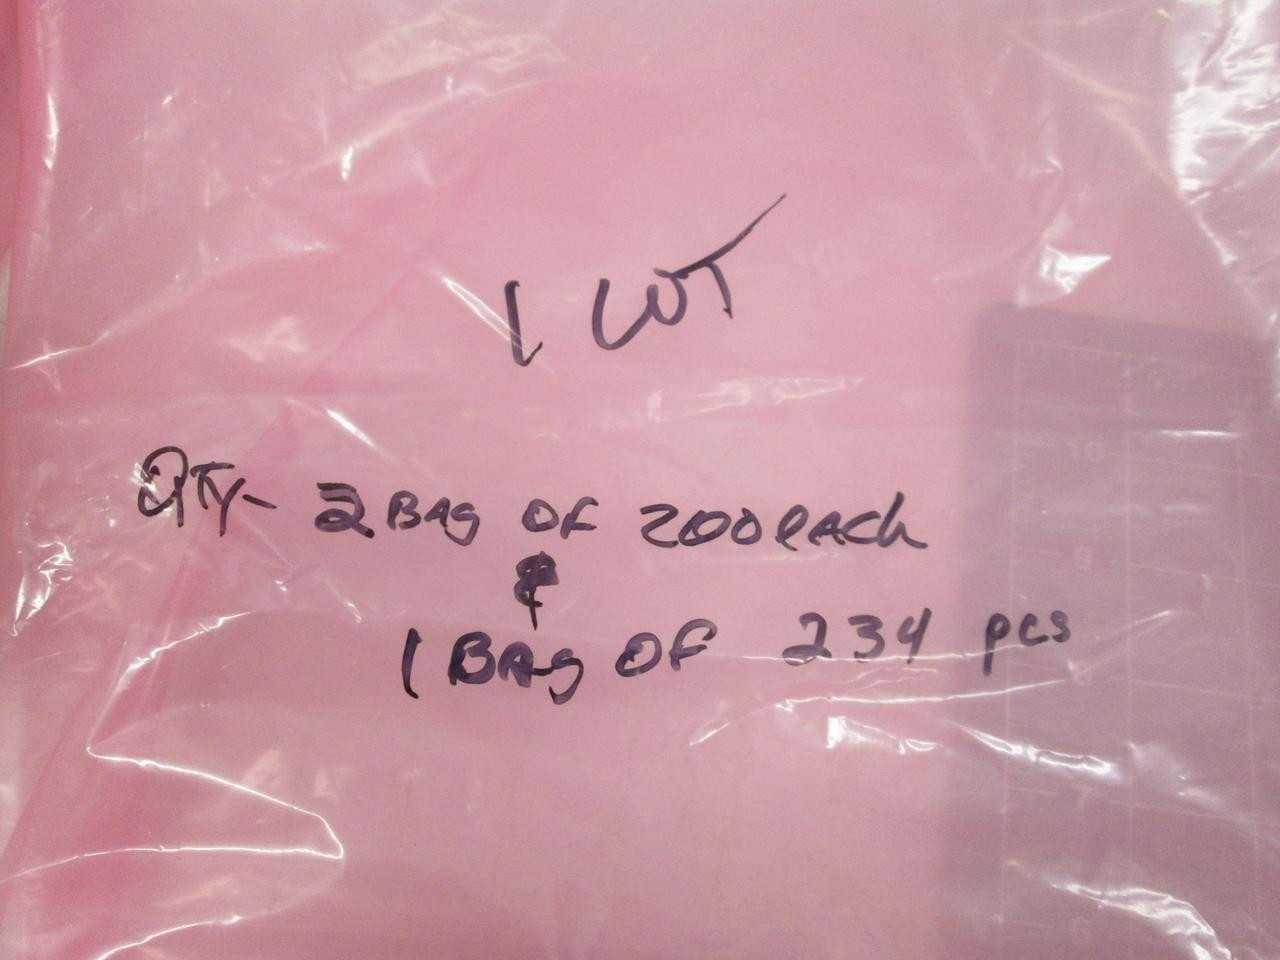 1 LOT
QTY- 2 BAg OF 200 eACh
&
1 BAg OF 234 pcs